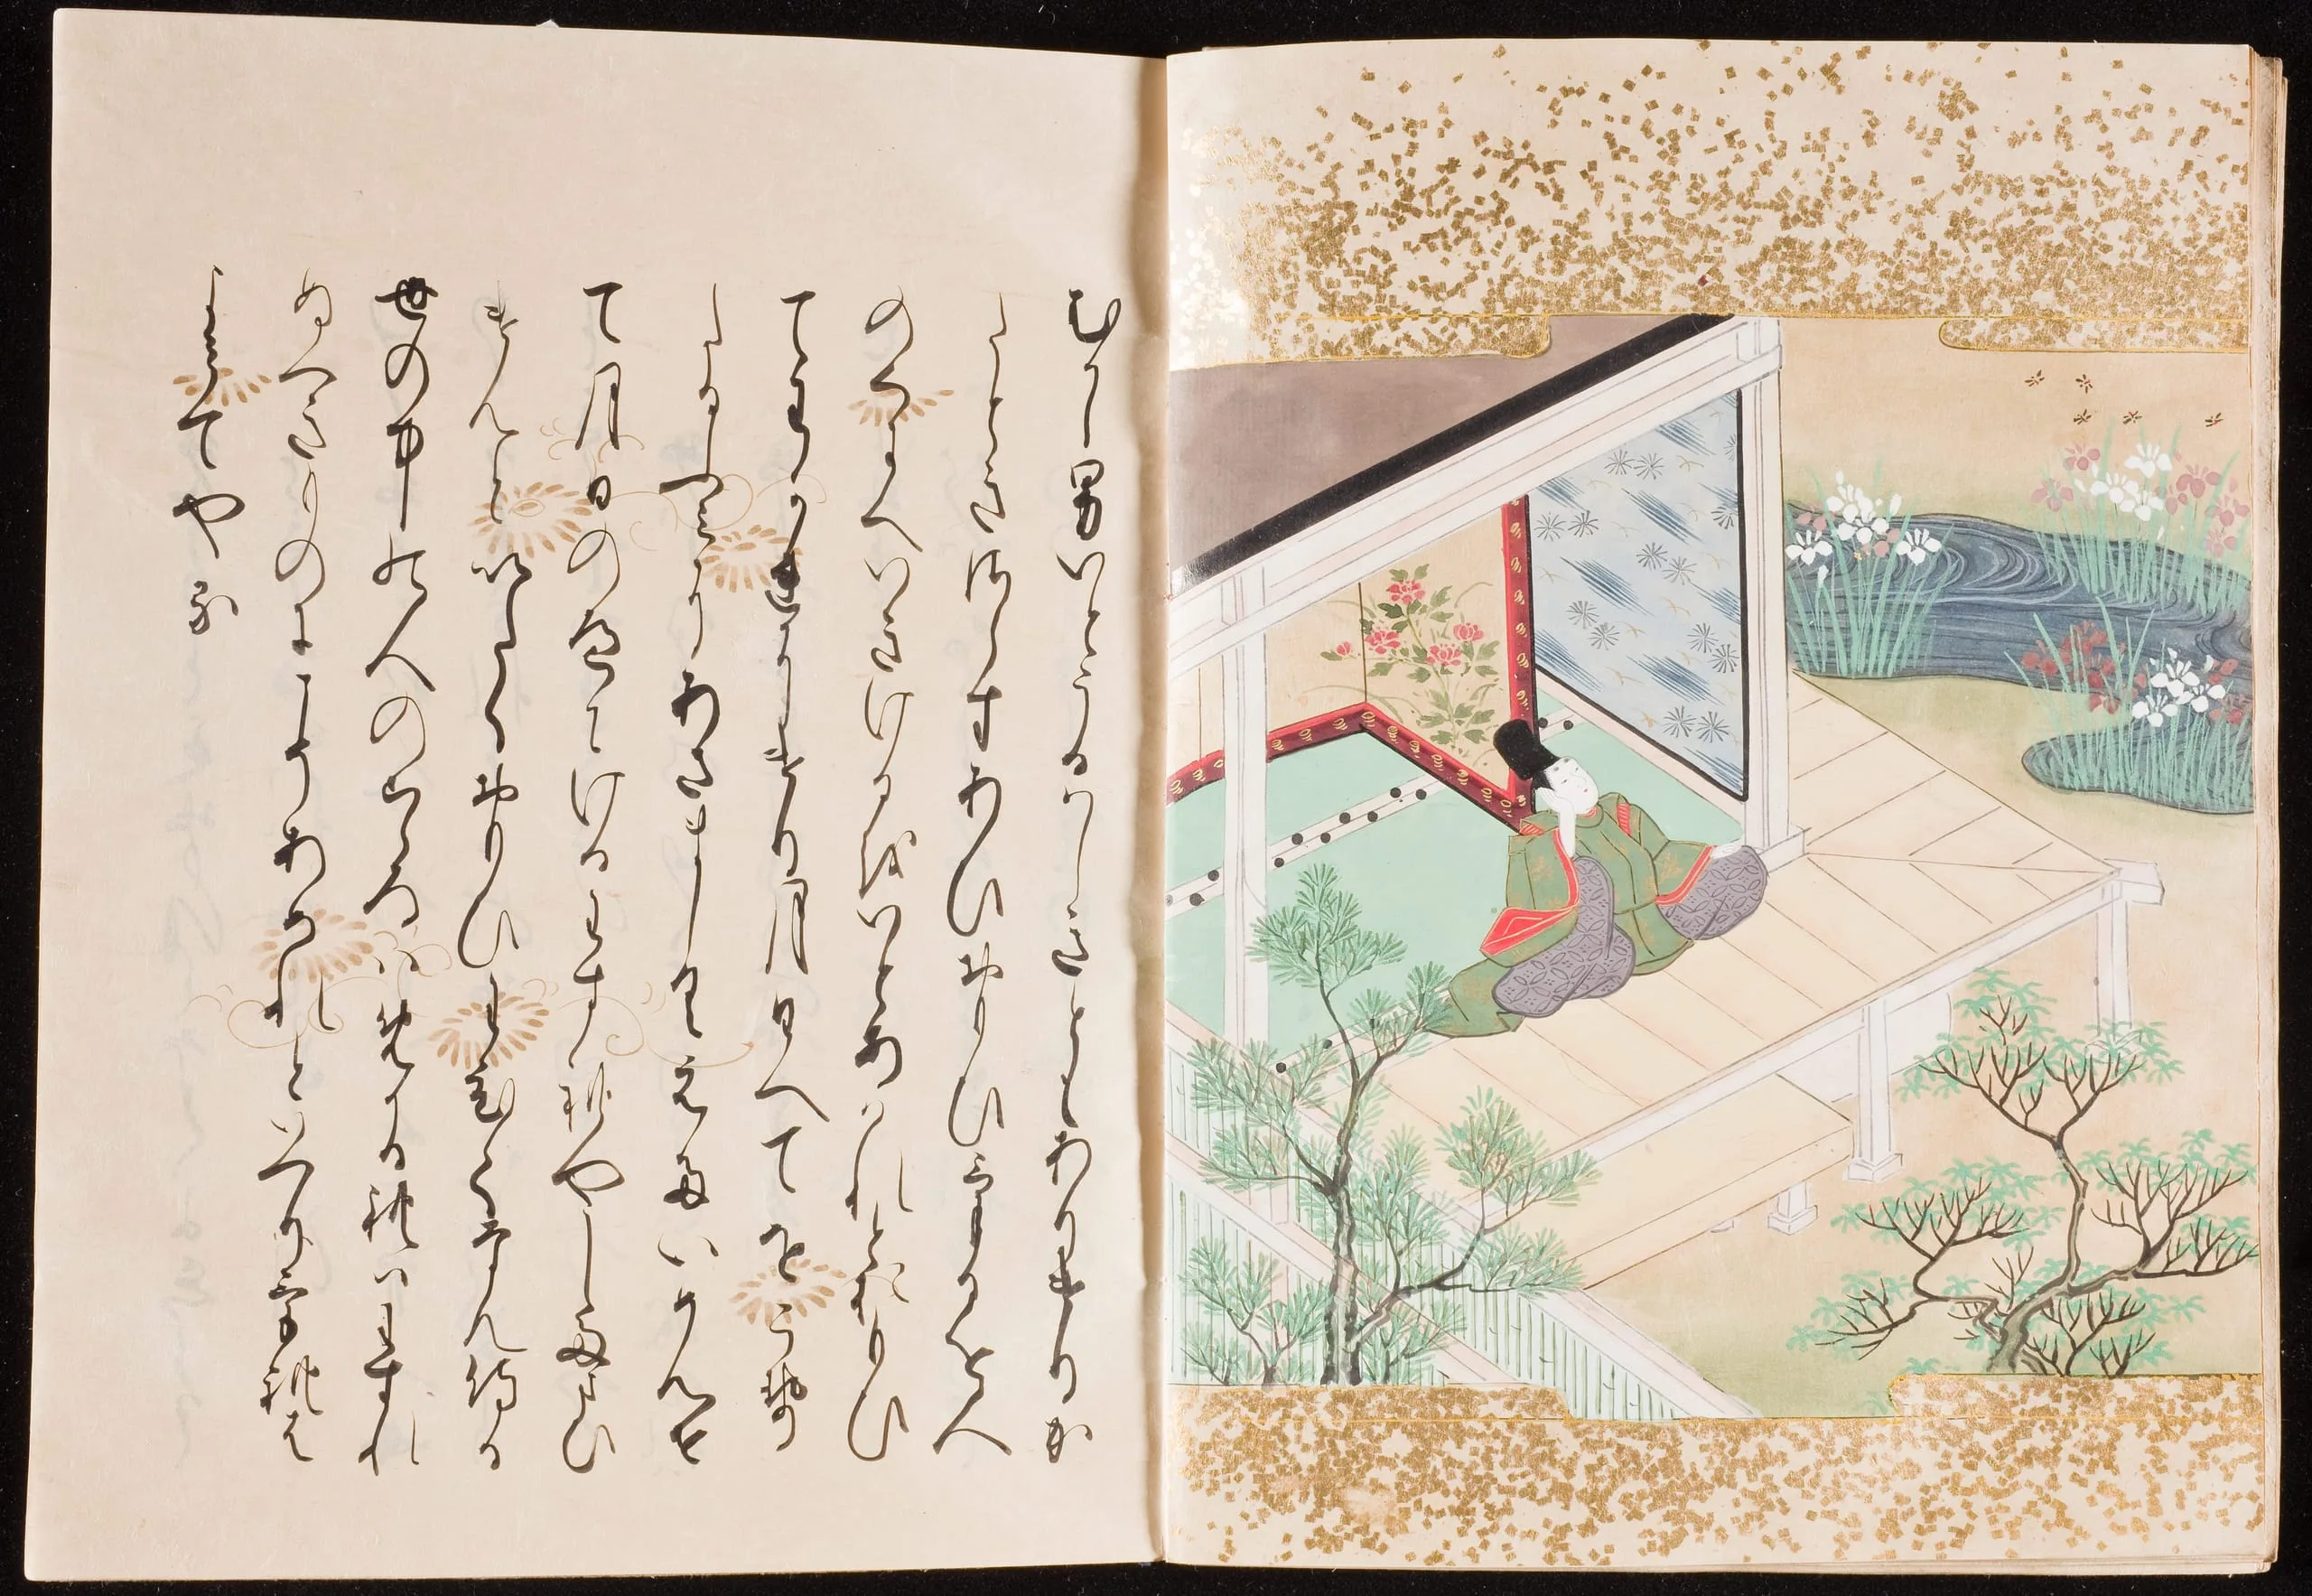 むかし男いとうるはしきともありけりか
たときさらすあひおもひけるを人
のくにへいきけるをいとあはれとおもひ
てわかれにけり月日へてをこせ
たるふみにあさましくえたいめんせ
て月日のへにけるわすれやしたまひ
にけんといたくおもひわひてなん侍る
世の中の人のこゝろはめかるれはわすれ
ぬへきものにこそあめれといへりけれは
よみてやる